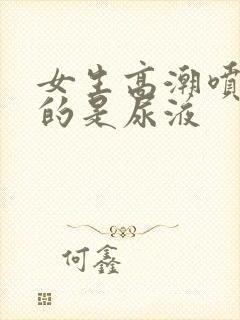 女生高潮喷
的是尿液
何鑫